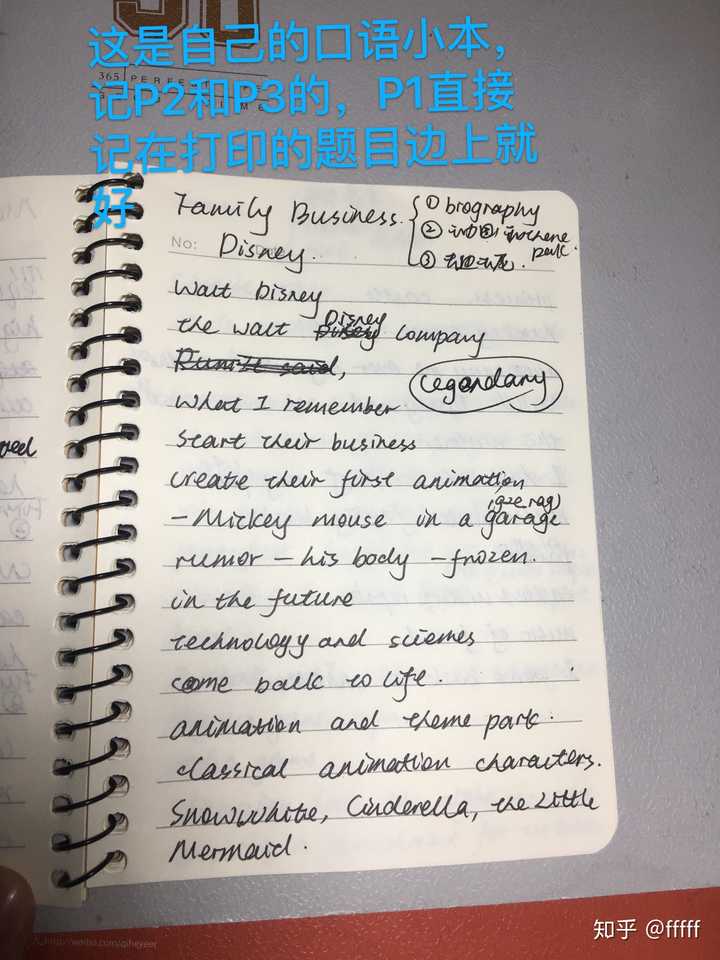 这是自己的口语小本，
记P2和P3的，P1直接
记在打印的题目边上就
好
365 PERFE
Family Business.
① biography
② 动画和theme park
③
No:
Disney.
Walt Disney
the Walt Disney Company
legendary
What I remember
Start their business
create their first animation
-Mickey mouse in a garage
rumor - his body - frozen.
in the future
technology and sciences
come back to life.
animation and theme park.
classical animation characters.
Snowwhite, Cinderella, the Little
Mermaid.
知乎 @fffff